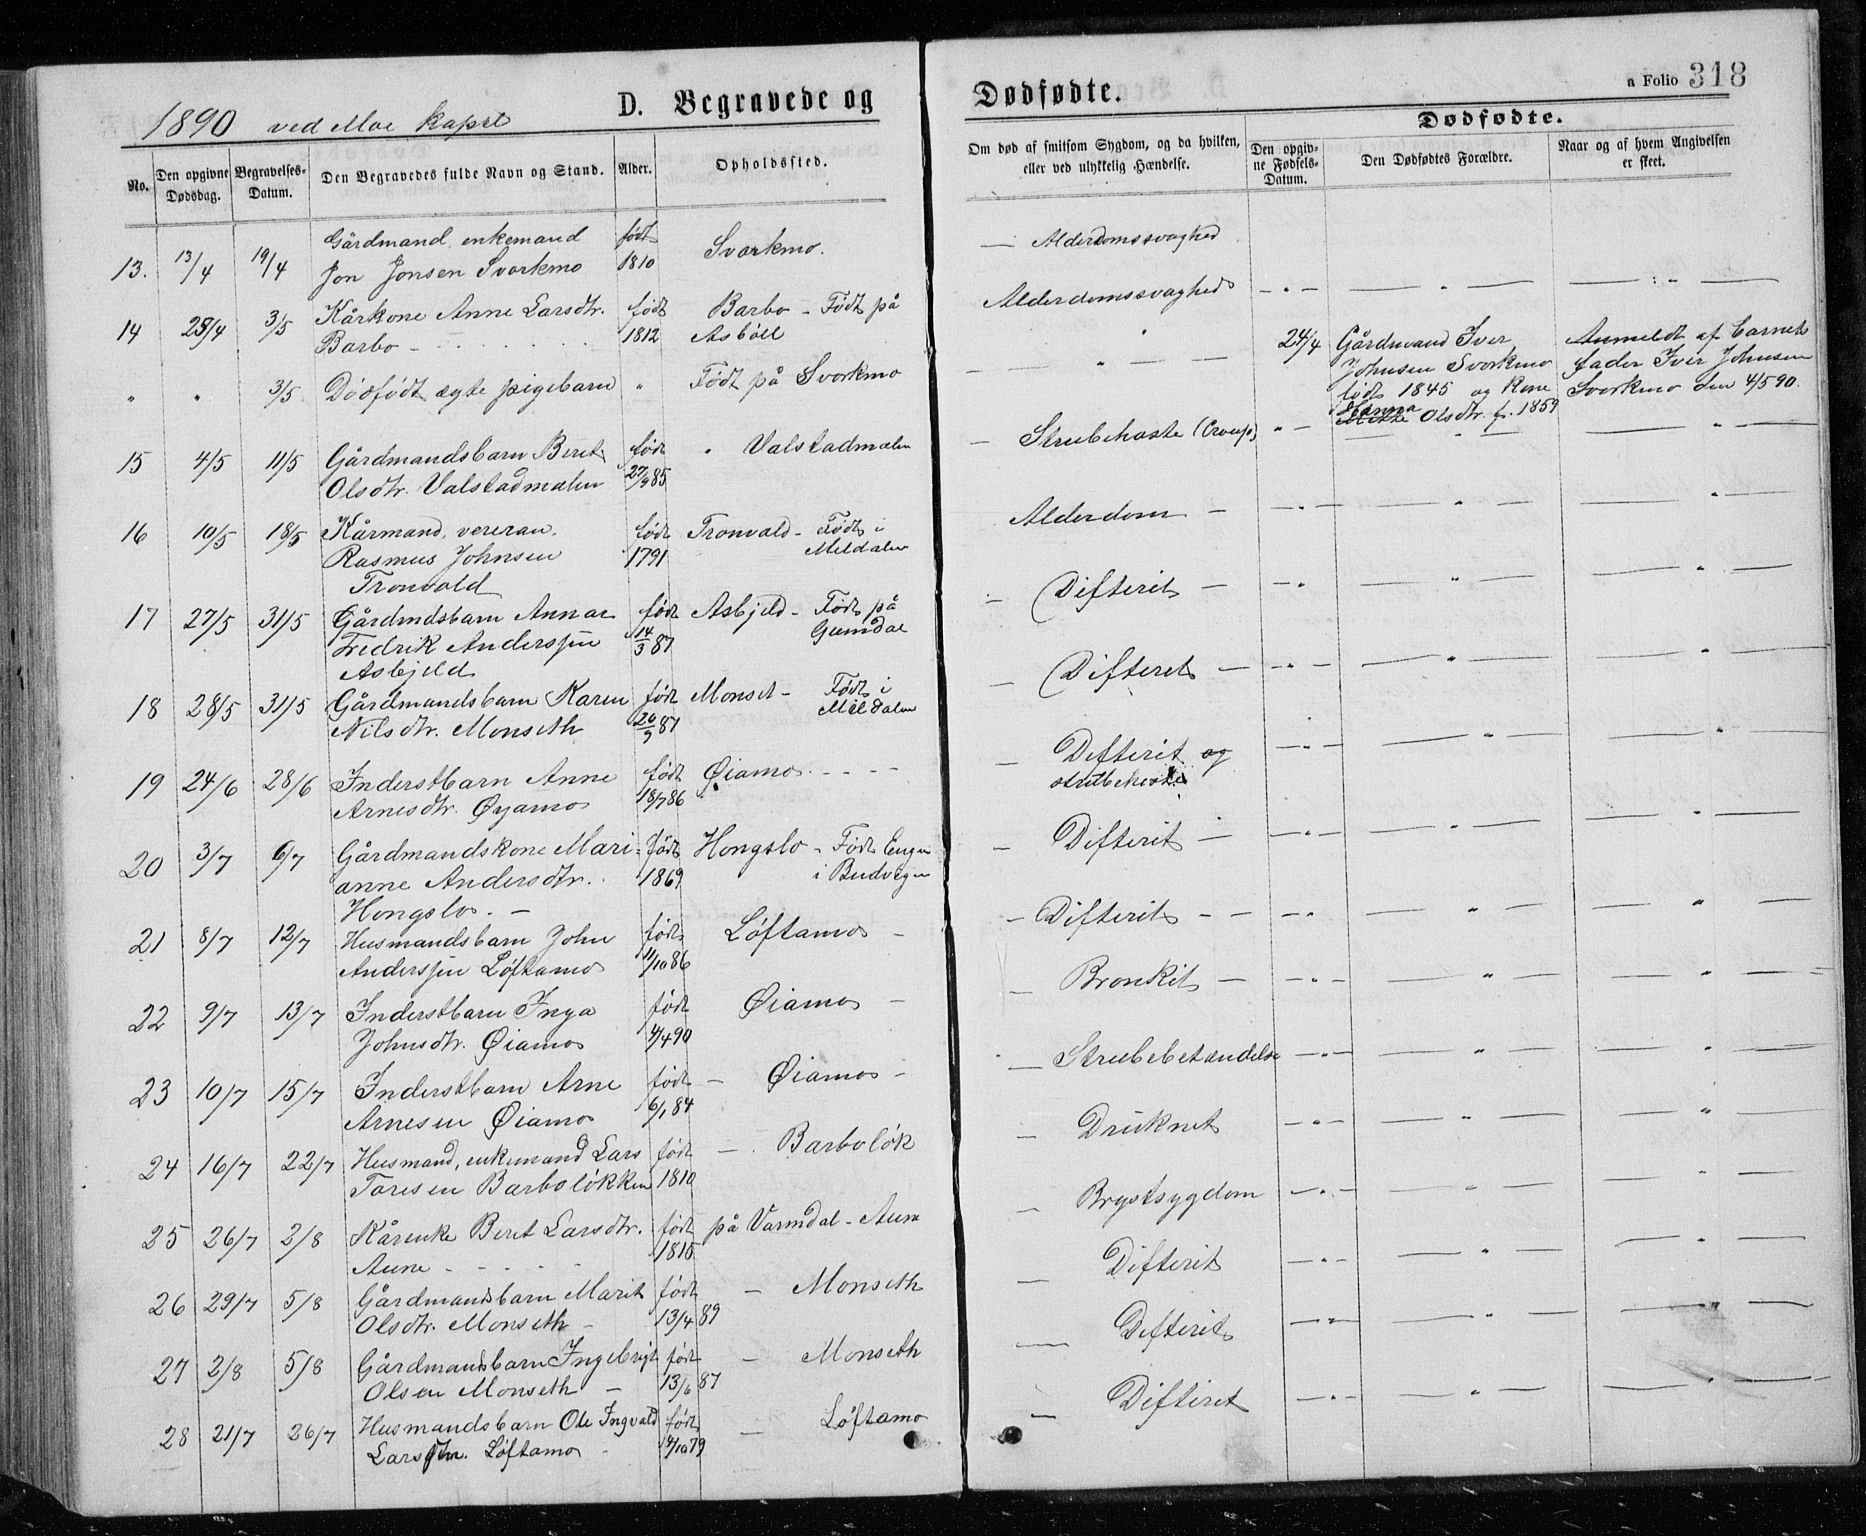 1890 ved Moe kapel
D. Begravede og
Dødfødte.
a Folio 318
No.
Den opgivne Dødsdag.
Begravelses-Datum.
Den Begravedes fulde Navn og Stand.
Alder.
Opholdssted.
Om død af smitsom Sygdom, og da hvilken,
eller ved ulykkelig Hændelse.
Dødfødte.
Den opgiv-
ne Fødsels-
Datum.
Den Dødfødtes Forældre.
Naar og af hvem Angivelsen
er skeet.
13. 13/4 19/4 Gårdmand, enkemand født Svorkmo. — Alderdomssvaghed
Jon Jonsen Svorkmo 1810
14 25/4 3/5 Kårkone Anne Larsdtr. født Barbo - Født på Alderdomssvaghed — " — — " — — " —
Barbo - 1812 Asbøll
" " 3/5 Dødfødt ægte pigebarn " Født på Svorkmo — " — — 24/4 Gårdmand Iver Anmeldt af barnets
Johnsen Svorkmo fader Iver Johnsen
født 1845 og Kone Svorkmo den 4/5 90.
Hanna
Mette Olsdtr. f. 1859
15 4/5 11/5 Gårdmandsbarn Beret født " Valstadmælen — Strubehoste (Croup) " — — " — — " —
Olsdtr. Valstadmælen 27/9 85
16 10/5 18/5 Kårmand, vereran. født Tronvold - Født i Alderdom — — " — — " — — " —
Rasmus Johnsen 1791 Meldalen
Tronvold
17 27/5 31/5 Gårdmdsbarn Annar født Asbjeld - Født på — Difterit — — " — — " — — " —
Fredrik Anderssen 14/3 87 Gumdal
Asbjeld
18 28/5 31/5 Gårdmandsbarn Karen født Monset - Født i — Difteret — — " — — " — — " —
Nilsdtr. Monseth 20/9 87 Meldalen
19 24/6 28/6 Inderstbarn Anne født Øiamo - - - - — Difterit og — " — — " — — " —
Arnesdtr. Øyamo 18/7 86 strubehoste
20 3/7 6/7 Gårdmandskone Mari- født Hongslo - Født Engen — Difterit — — " — — " — — " —
anne Andersdtr. 1869 i Budvigen
Hongslo. —
21 8/7 12/7 Husmandsbarn John født Løftamo — — Difterit — — — " — — " — — " —
Anderssen Løftamo 11/10 86
22 9/7 13/7 Inderstbarn Inga født Øiamo — — Bronkit — — " — — " — — " —
Johnsdtr. Øiamo 4/4 90
23 10/7 15/7 Inderstbarn Arne født — Øiamo — — Strubebetændelse — " — — " — — " —
Arnesen Øiamo 6/1 84
24 16/7 22/7 Husmand, enkemand Lars født — Barboløk — Druknet — " — — " — — " —
Toresen Barboløkken 1810
25 26/7 2/8 Kårenke Beret Larsdtr. født på Varmdal - Aune — Brystsygdom — " — — " — — " —
Aune - - - - 1815
26 29/7 5/8 Gårdmandsbarn Marit født — Monseth — Difterit — " — — " — — " —
Olsdtr. Monseth — 13/4 89
27 2/8 5/8 Gårdmandsbarn Ingebrigt født — Monseth — Difterit — " — — " — — " —
Olsen Monseth — 13/6 87
28 21/7 26/7 Husmandsbarn Ole Ingvald født — Løftamo — Difterit — " — — " — — " —
Løftamo - 4/10 79